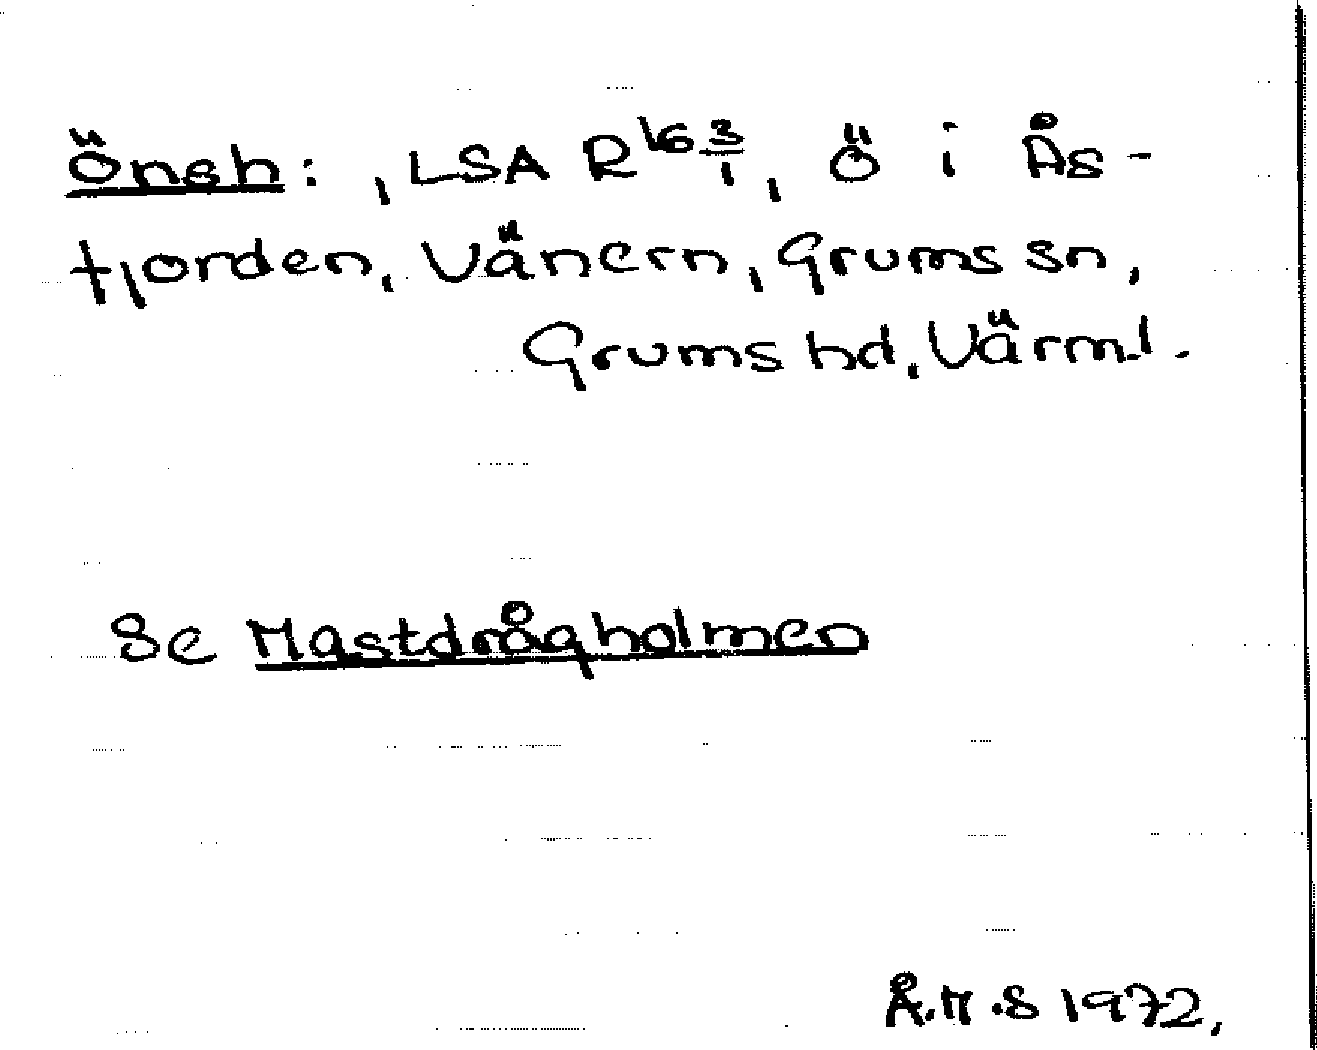 Öneh: , LSA R16 3/1, ö i Ås-
fjorden, Vänern, Grums sn,
Grums hd, Värml.
Se Mastdrågholmen
Å.H.S 1972,